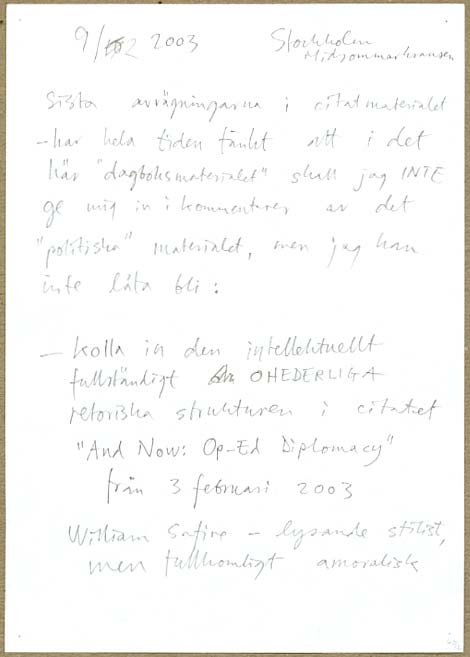 9/2 2003 Stockholm
Midsommarkransen
Sista avvägningarna i citatmaterialet
– har hela tiden tänkt att i det
här "dagboksmaterialet" skall jag INTE
ge mig in i kommentarer av det
"politiska" materialet, men jag kan
inte låta bli:
– kolla in den intellektuellt
fullständigt OHEDERLIGA
retoriska strukturen i citatet
"And Now: Op-Ed Diplomacy"
från 3 februari 2003
William Safire – lysande stilist,
men fullkomligt amoralisk